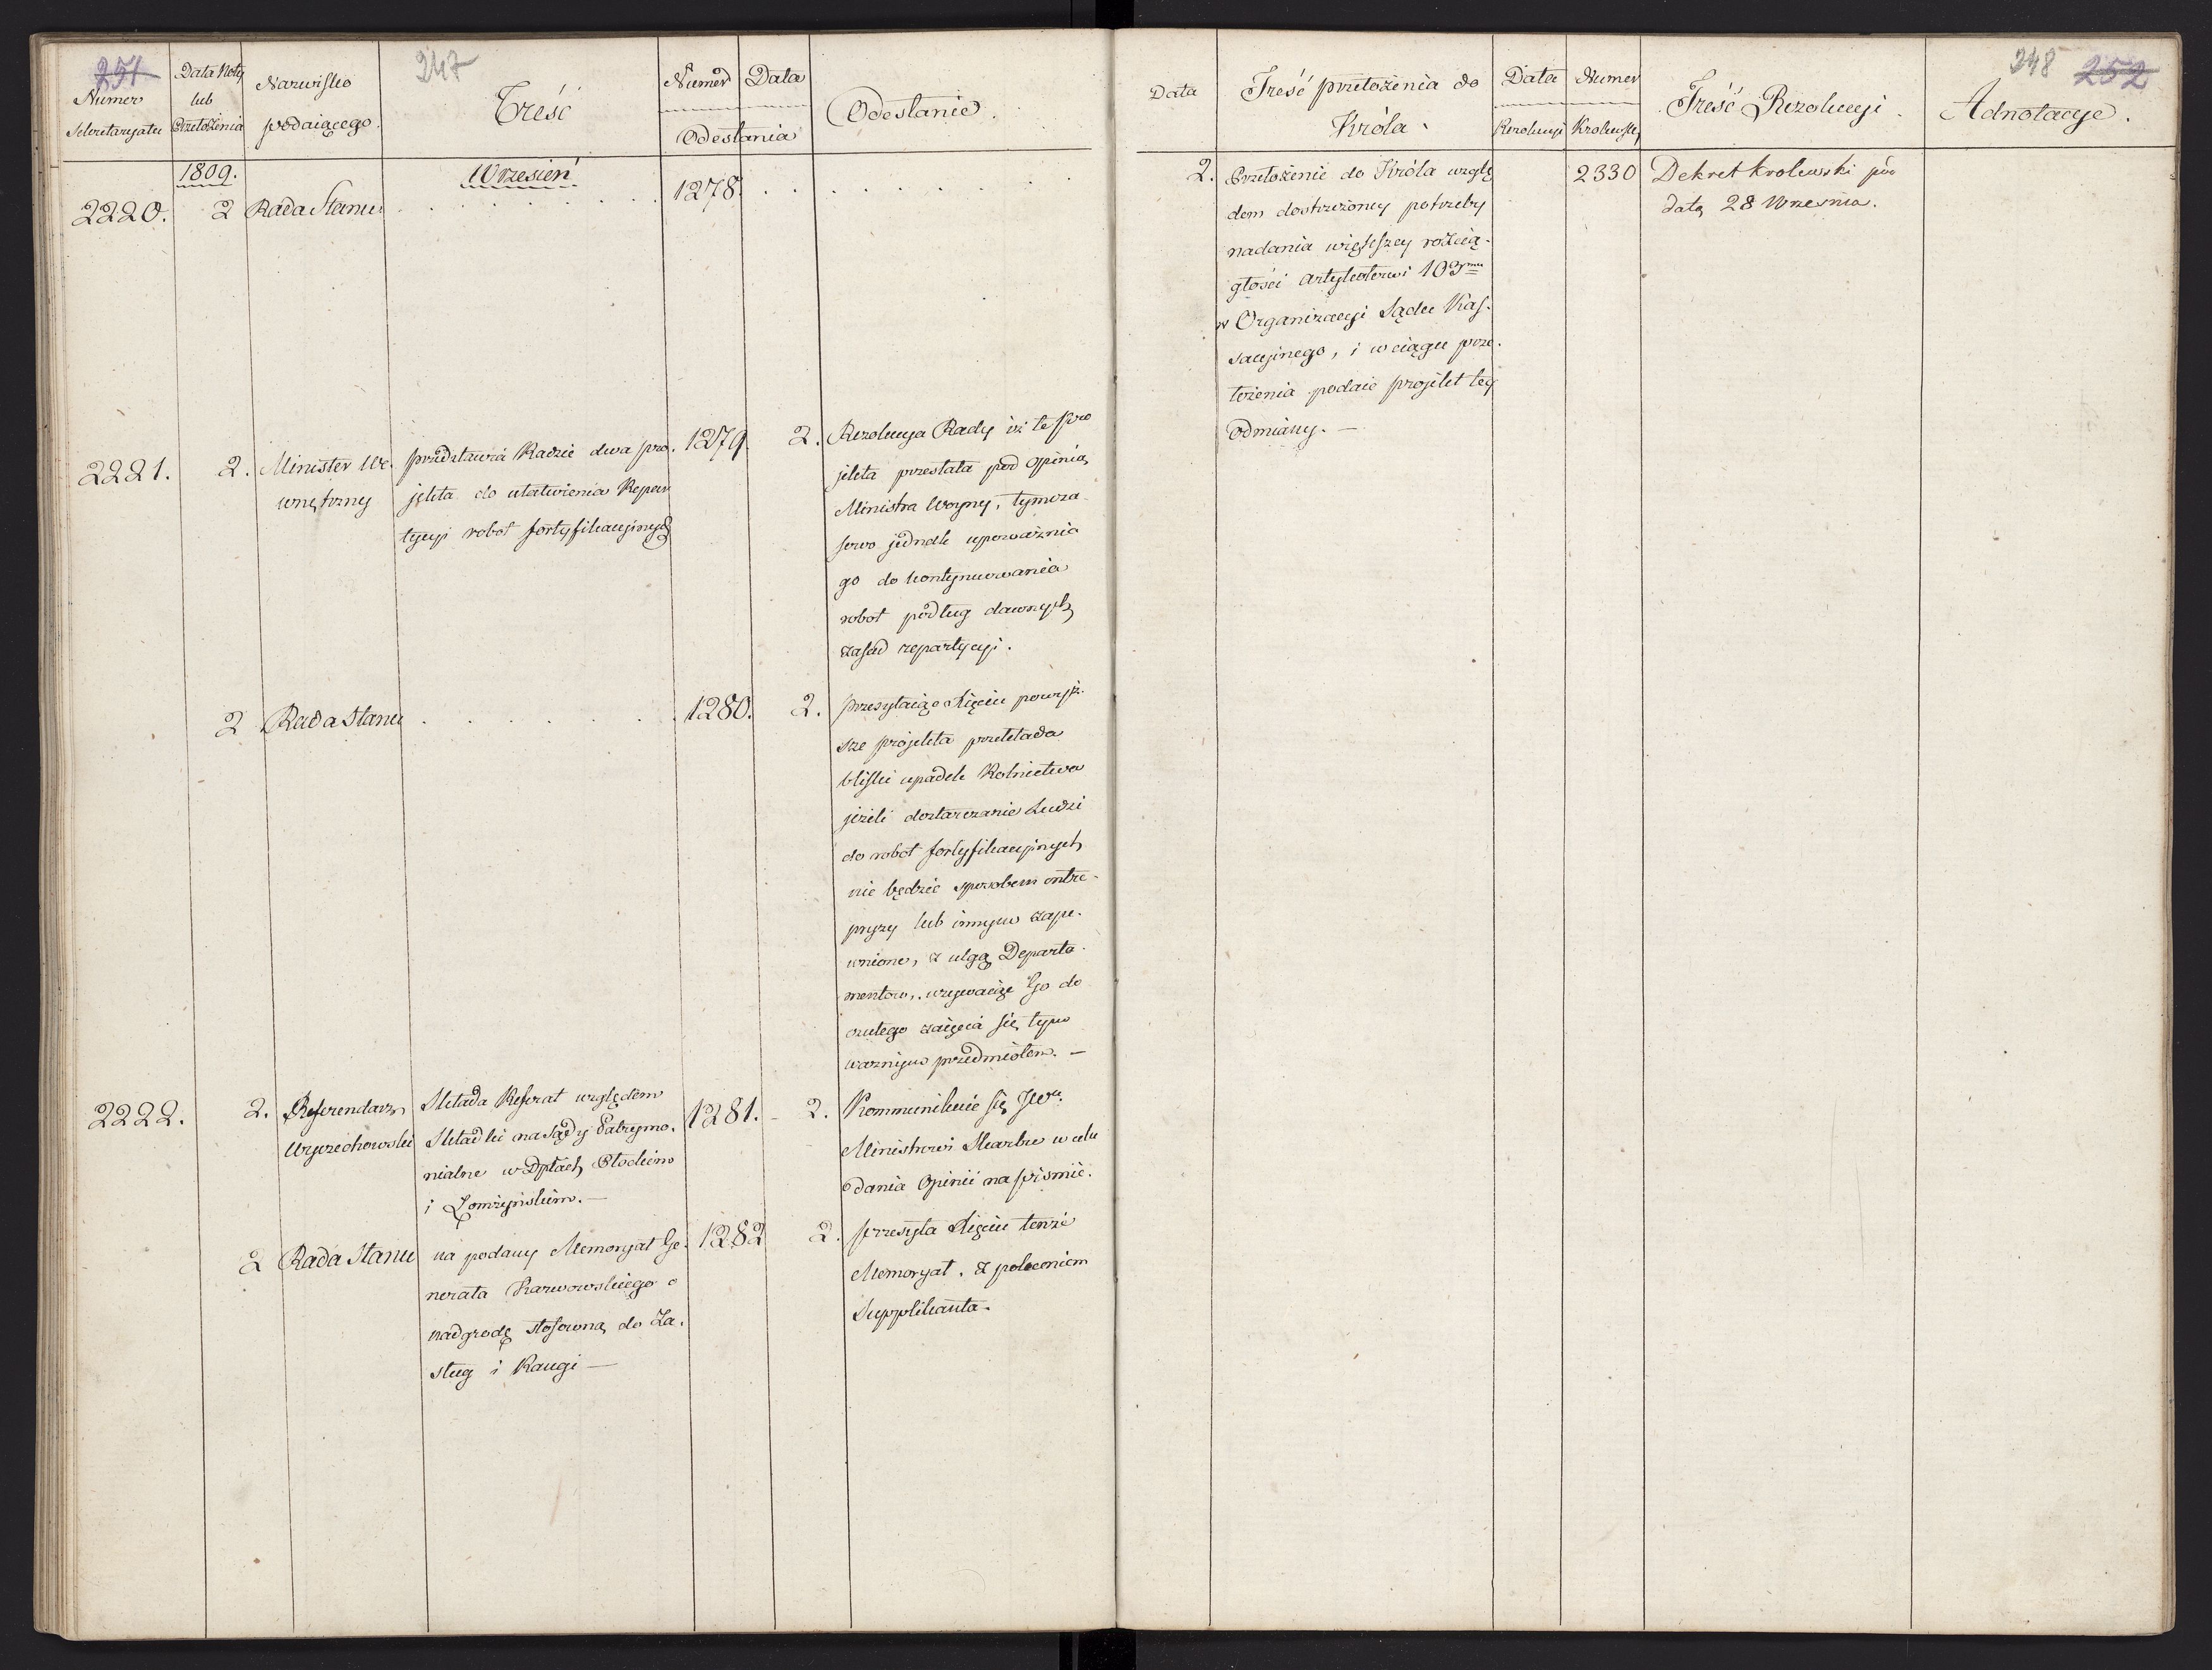 251
247
Numer Sekretaryatu
Data Noty lub Przełożenia
Nazwisko podaiącego.
Treść
Numer
Data
Odesłania
Odesłanie.
1809.
Wrzesień
2220. 2 Rada Stanu
1278.
2221. 2. Minister We-
wnętrzny
przedstawia Radzie dwa pro-
jekta do ułatwienia Repar
tycyi robot fortyfikacyinych
1279. 2.
Rezolucya Rady iż te pro
jekta przesłała pod opinią
Ministra Woyny, tymcza
sowo jednak upoważnia
go do kontynuowania
robot podług dawnych
zasad repartycyi.
2 Rada Stanu
1280. 2.
przesyłaiąc Xięciu powyż-
sze projekta przekłada
bliski upadek Rolnictwa
jeżeli dostarczanie Ludzi
do robot fortyfikacyinych
nie będzie sposobem entre-
pryzy lub innym zape-
wnione, z ulgą Departa-
mentow, wzywaiąc Go do
czułego zaięcia się tym
ważnym przedmiotem. —
2222. 2. Referendarz
Wyczechowski
Składa Referat względem
Składki na Sądy Patrymo-
nialne w Dptach Płockim
i Łomżyńskim. —
1281. 2.
Kommunikuie się JW.
Ministrowi Skarbu w celu
dania Opinii na piśmie.
2 Rada Stanu
na podany Memoryał Ge-
nerała Karwowskiego o
nadgrodę stosowną do Za-
sług i Rangi —
1282 2.
przesyła Xięciu tenże
Memoryał, z poleceniem
Supplikanta.
248 252
Data
Treść przełożenia do
Króla.
Data
Rezolucyi
Numer
Krolewski
Treść Rezolucyi.
Adnotacye.
2. Przełożenie do Króla wzglę
dem dostrzeżoney potrzeby
nadania większey rozcią-
głości artykułowi 103mu
w Organizacyi Sądu Kas-
sacyinego, i w ciągu prze-
łożenia podaie projekt tey
Odmiany. —
2330
Dekret krolewski pod
datą 28 Wrzesnia.